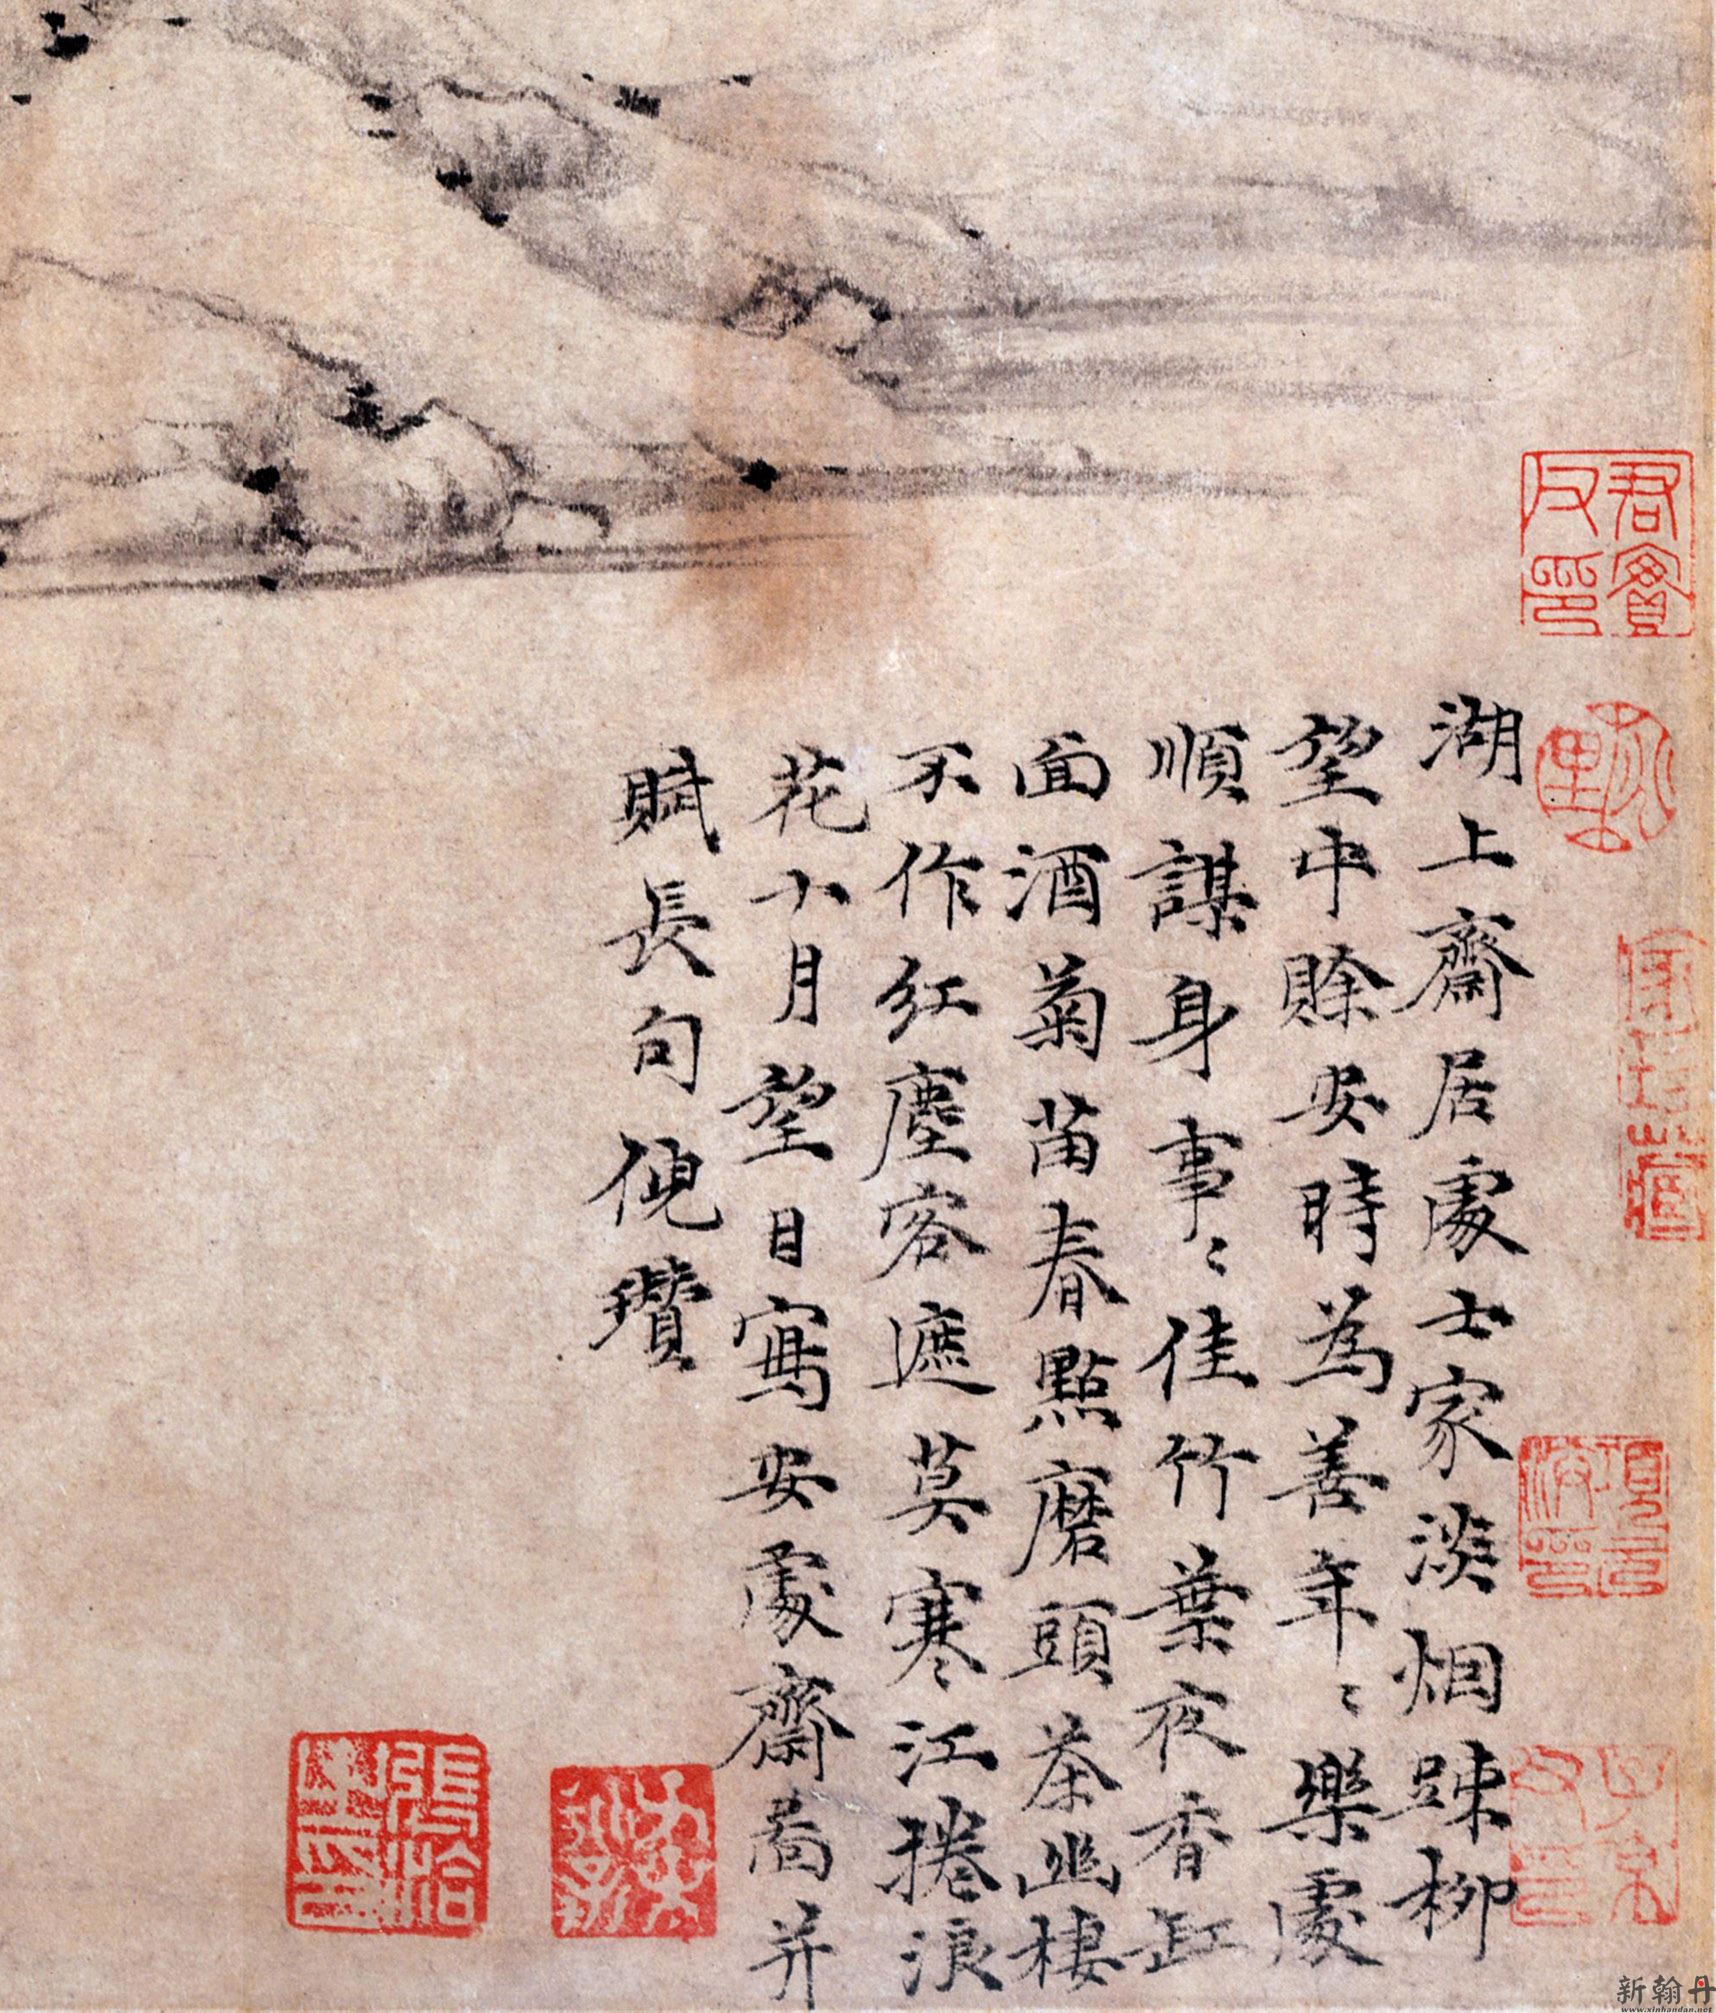 湖上齋居處士家淡烟踈柳
望中賖安時為善年〻樂處
順謀身事〻佳竹葉夜香缸
面酒菊苗春點磨頭茶幽棲
不作紅塵客遮莫寒江捲浪
花十月望日寫安處齋啚并
賦長句倪瓚
君實父印
新翰丹
www.xinhandan.net